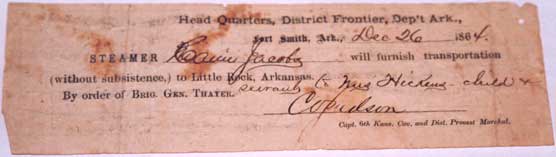 Head Quarters, District Frontier, Dep't Ark.,
Fort Smith, Ark., Dec 26 1864.
STEAMER Jacobs will furnish transportation
(without subsistence,) to Little Rock, Arkansas. to Mrs child &
servant
By order of BRIG. GEN. THAYER.
Capt. 6th Kans. Cav. and Dist. Provost Marshal.